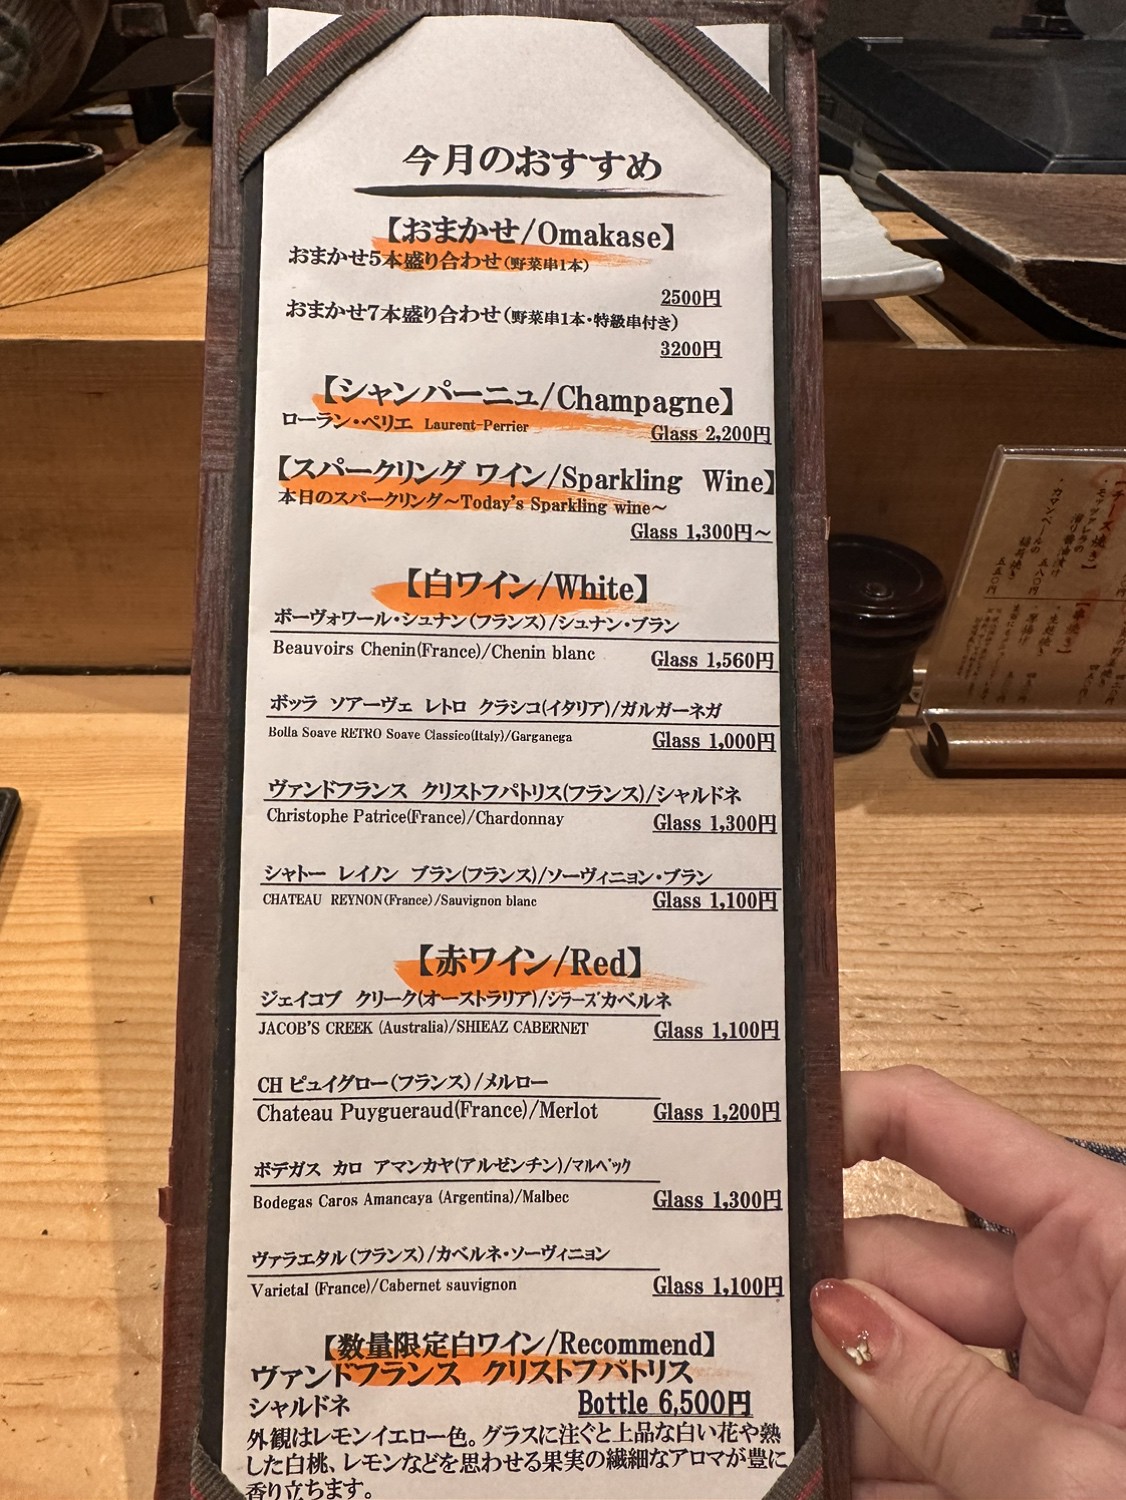 今月のおすすめ
【おまかせ/Omakase】
おまかせ5本盛り合わせ(野菜串1本)
2500円
おまかせ7本盛り合わせ(野菜串1本・特級串付き)
3200円
【シャンパーニュ/Champagne】
ローラン・ペリエ Laurent-Perrier Glass 2,200円
【スパークリング ワイン/Sparkling Wine】
本日のスパークリング～Today's Sparkling wine～
Glass 1,300円～
【白ワイン/White】
ボーヴォワール・シュナン(フランス)/シュナン・ブラン
Beauvoirs Chenin(France)/Chenin blanc Glass 1,560円
ボッラ ソアーヴェ レトロ クラシコ(イタリア)/ガルガーネガ
Bolla Soave RETRO Soave Classico(Italy)/Garganega Glass 1,000円
ヴァンドフランス クリストフパトリス(フランス)/シャルドネ
Christophe Patrice(France)/Chardonnay Glass 1,300円
シャトー レイノン ブラン(フランス)/ソーヴィニョン・ブラン
CHATEAU REYNON(France)/Sauvignon blanc Glass 1,100円
【赤ワイン/Red】
ジェイコブ クリーク(オーストラリア)/シラーズカベルネ
JACOB'S CREEK (Australia)/SHIEAZ CABERNET Glass 1,100円
CH ピュイグロー(フランス)/メルロー
Chateau Puygueraud(France)/Merlot Glass 1,200円
ボデガス カロ アマンカヤ(アルゼンチン)/マルベック
Bodegas Caros Amancaya (Argentina)/Malbec Glass 1,300円
ヴァラエタル(フランス)/カベルネ・ソーヴィニョン
Varietal (France)/Cabernet sauvignon Glass 1,100円
【数量限定白ワイン/Recommend】
ヴァンドフランス クリストフパトリス
シャルドネ Bottle 6,500円
外観はレモンイエロー色。グラスに注ぐと上品な白い花や熟
した白桃、レモンなどを思わせる果実の繊細なアロマが豊に
香り立ちます。
【チーズ焼き】
・モッツァレラの
カマンベールの